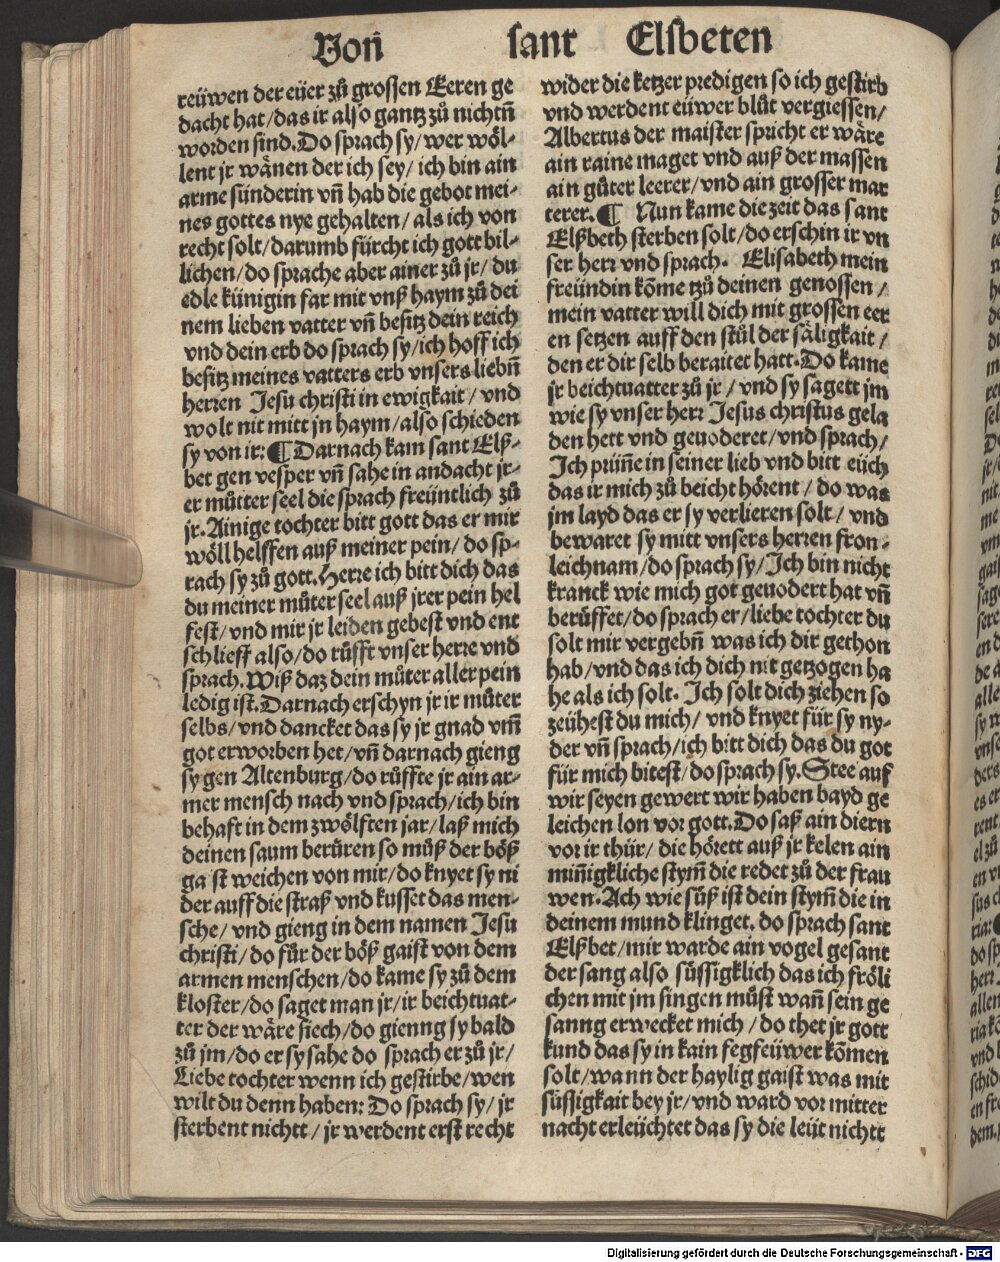 Von̄ sant Elsbeten
reüwen der eüer zů grossen Eeren ge
dacht hat/das ir also gantz zů nichtn̄
worden sind. Do sprach sy/wer wöl-
lent jr wänen der ich sey/ich bin ain
arme sünderin vn̄ hab die gebot mei-
nes gottes nye gehalten/als ich von
recht solt/darumb fürcht ich gott bil-
lichen/do sprache aber ainer zů jr/du
edle künigin far mit vnß haym zů dei
nem lieben vatter vn̄ besitz dein reich
vnd dein erb do sprach sy/ich hoff ich
besitz meines vatters erb vnsers liebn̄
herren Jesu christi in ewigkait/vnd
wolt nit mitt jn haym/also schieden
sy von ir: ¶ Darnach kam sant Elß-
bet gen vesper vn̄ sahe in andacht jr-
er můtter seel die sprach freüntlich zů
jr. Ainige tochter bitt gott das er mir
wöll helffen auß meiner pein/do sp-
rach sy zů gott. Herre ich bitt dich das
du meiner můter seel auß jrer pein hel
fest/vnd mir jr leiden gebest vnd ent
schlieff also/do růfft vnser herre vnd
sprach. Wiß daz dein můter aller pein
ledig ist. Darnach erschyn jr ir můter
selbs/vnd dancket das sy jr gnad vm̄
got erworben het/vn̄ darnach gieng
sy gen Altenburg/do růffte jr ain ar-
mer mensch nach vnd sprach/ich bin
behaft in dem zwölften jar/laß mich
deinen saum berüren so můß der böß
gaist weichen von mir/do knyet sy ni
der auff die straß vnd kusset das men-
sche/vnd gieng in dem namen Jesu
christi/do fůr der böß gaist von dem
armen menschen/do kame sy zů dem
kloster/do saget man jr/ir beichtuat-
ter der wäre siech/do gienng sy bald
zů jm/do er sy sahe do sprach er zů jr/
Liebe tochter wenn ich gestirbe/wen
wilt du denn haben: Do sprach sy/jr
sterbent nichtt/jr werdent erst recht
wider die ketzer predigen so ich gestirb
vnd werdent eüwer blůt vergiessen/
Albertus der maister spricht er wäre
ain raine maget vnd auß der massen
ain gůter leerer/vnd ain grosser mar
terer. ¶ Nun kame die zeit das sant
Elßbeth sterben solt/do erschin ir vn
ser herr vnd sprach. Elisabeth mein
freündin kōme tzů deinen genossen/
mein vatter will dich mit grossen eer
en setzen auff den stůl der säligkait/
den er dir selb beraitet hatt. Do kame
jr beichtuatter zů jr/vnd sy sagett jm
wie sy vnser herr Jesus christus gela
den hett vnd geuoderet/vnd sprach/
Ich prin̄ne in seiner lieb vnd bitt eüch
das ir mich zů beicht hörent/do was
jm layd das er sy verlieren solt/vnd
bewaret sy mitt vnsers herren fron-
leichnam/do sprach sy/Ich bin nicht
kranck wie mich got geuodert hat vn̄
berüffet/do sprach er/liebe tochter du
solt mir vergebn̄ was ich dir gethon
hab/vnd das ich dich nit getzogen ha
be als ich solt. Ich solt dich ziehen so
zeühest du mich/vnd knyet für sy ny-
der vn̄ sprach/ich bitt dich das du got
für mich bitest/do sprach sy. Stee auf
wir seyen gewert wir haben bayd ge
leichen lon vor gott. Do saß ain diern
vor ir thür/die hörett auß jr kelen ain
min̄igkliche stym̄ die redet zů der frau
wen. Ach wie süß ist dein stym̄ die in
deinem mund klinget. do sprach sant
Elßbet/mir warde ain vogel gesant
der sang also süssigklich das ich fröli
chen mit jm singen můst wan̄ sein ge
sanng erwecket mich/do thet jr gott
kund das sy in kain fegfeüwer kōmen
solt/wann der haylig gaist was mit
süssigkait bey jr/vnd ward vor mitter
nacht erleüchtet das sy die leüt nichtt
Digitalisierung gefördert durch die Deutsche Forschungsgemeinschaft - DFG